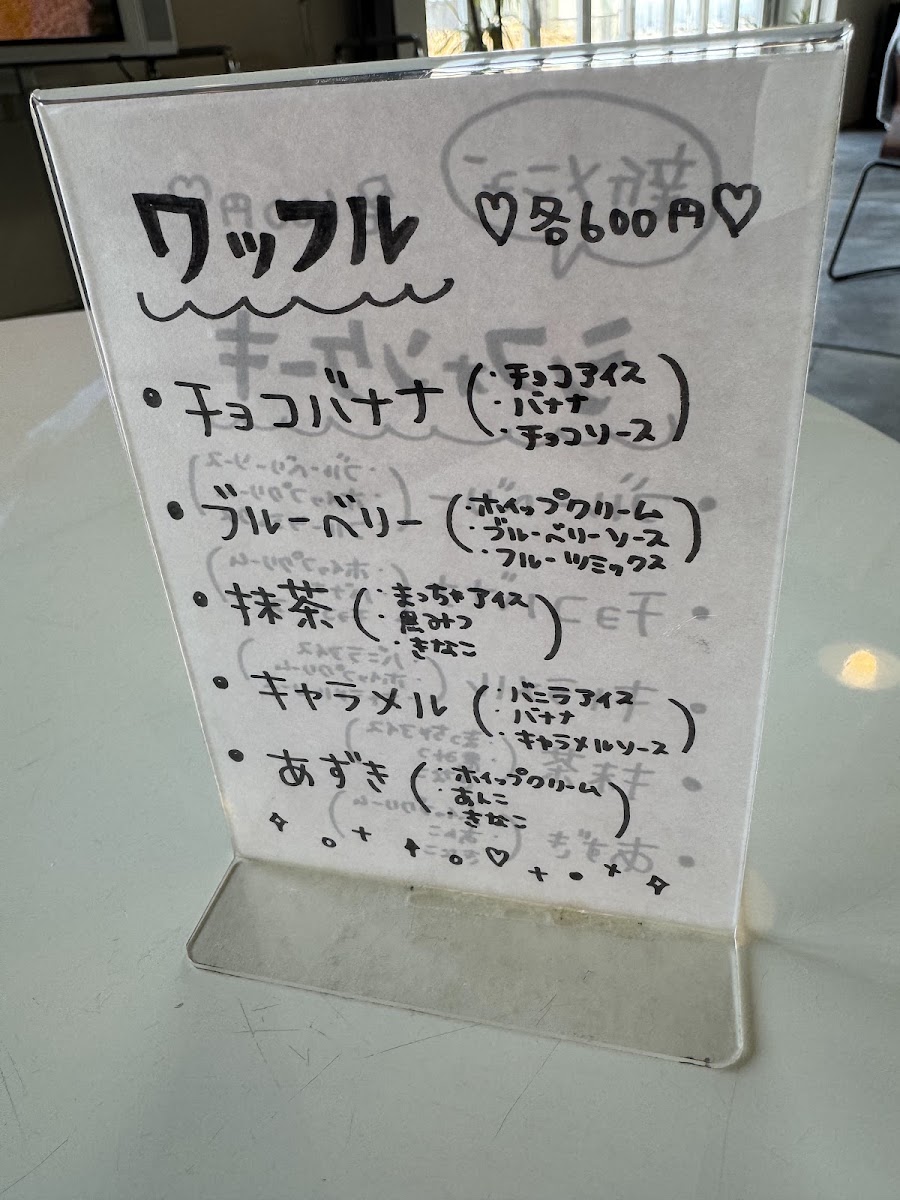 ワッフル ♡各600円♡
・チョコバナナ (・チョコアイス
・バナナ
・チョコソース)
・ブルーベリー (・ホイップクリーム
・ブルーベリーソース
・フルーツミックス)
・抹茶 (・まっちゃアイス
・黒みつ
・きなこ)
・キャラメル (・バニラアイス
・バナナ
・キャラメルソース)
・あずき (・ホイップクリーム
・あんこ
・きなこ)